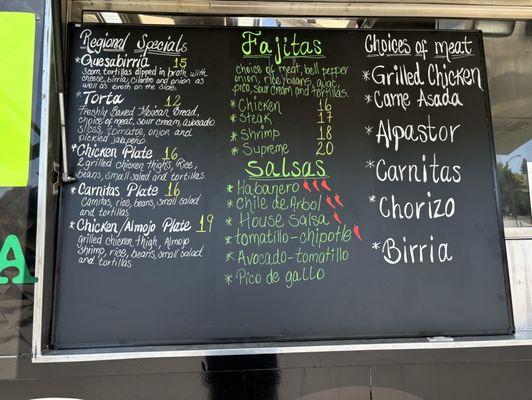 Regional Specials
* Quesabirria 15
3corn tortillas dipped in broth with
cheese, birria, cilantro and onion as
well as broth on the side.
* Torta 12
Freshly Baked Mexican Bread,
choice of meat, sour cream, avocado
slices, tomatoe, onion and
pickled jalapeno.
* Chicken Plate 16
2 grilled chicken thighs, Rice,
beans, small salad and tortillas
* Carnitas Plate 16
Carnitas, rice, beans, small salad
and tortillas
* Chicken/Almojo Plate 19
grilled chicken thigh, Almojo
Shrimp, rice, beans, small salad
and tortillas
Fajitas
choice of meat, bell pepper
onion, rice, beans, guac,
pico, sour cream and tortillas.
* Chicken 16
* Steak 17
* Shrimp 18
* Supreme 20
Salsas
* Habanero
* Chile de Arbol
* House Salsa
* tomatillo-chipotle
* Avocado-tomatillo
* Pico de gallo
Choices of meat
* Grilled Chicken
* Carne Asada
* Alpastor
* Carnitas
* Chorizo
* Birria
A